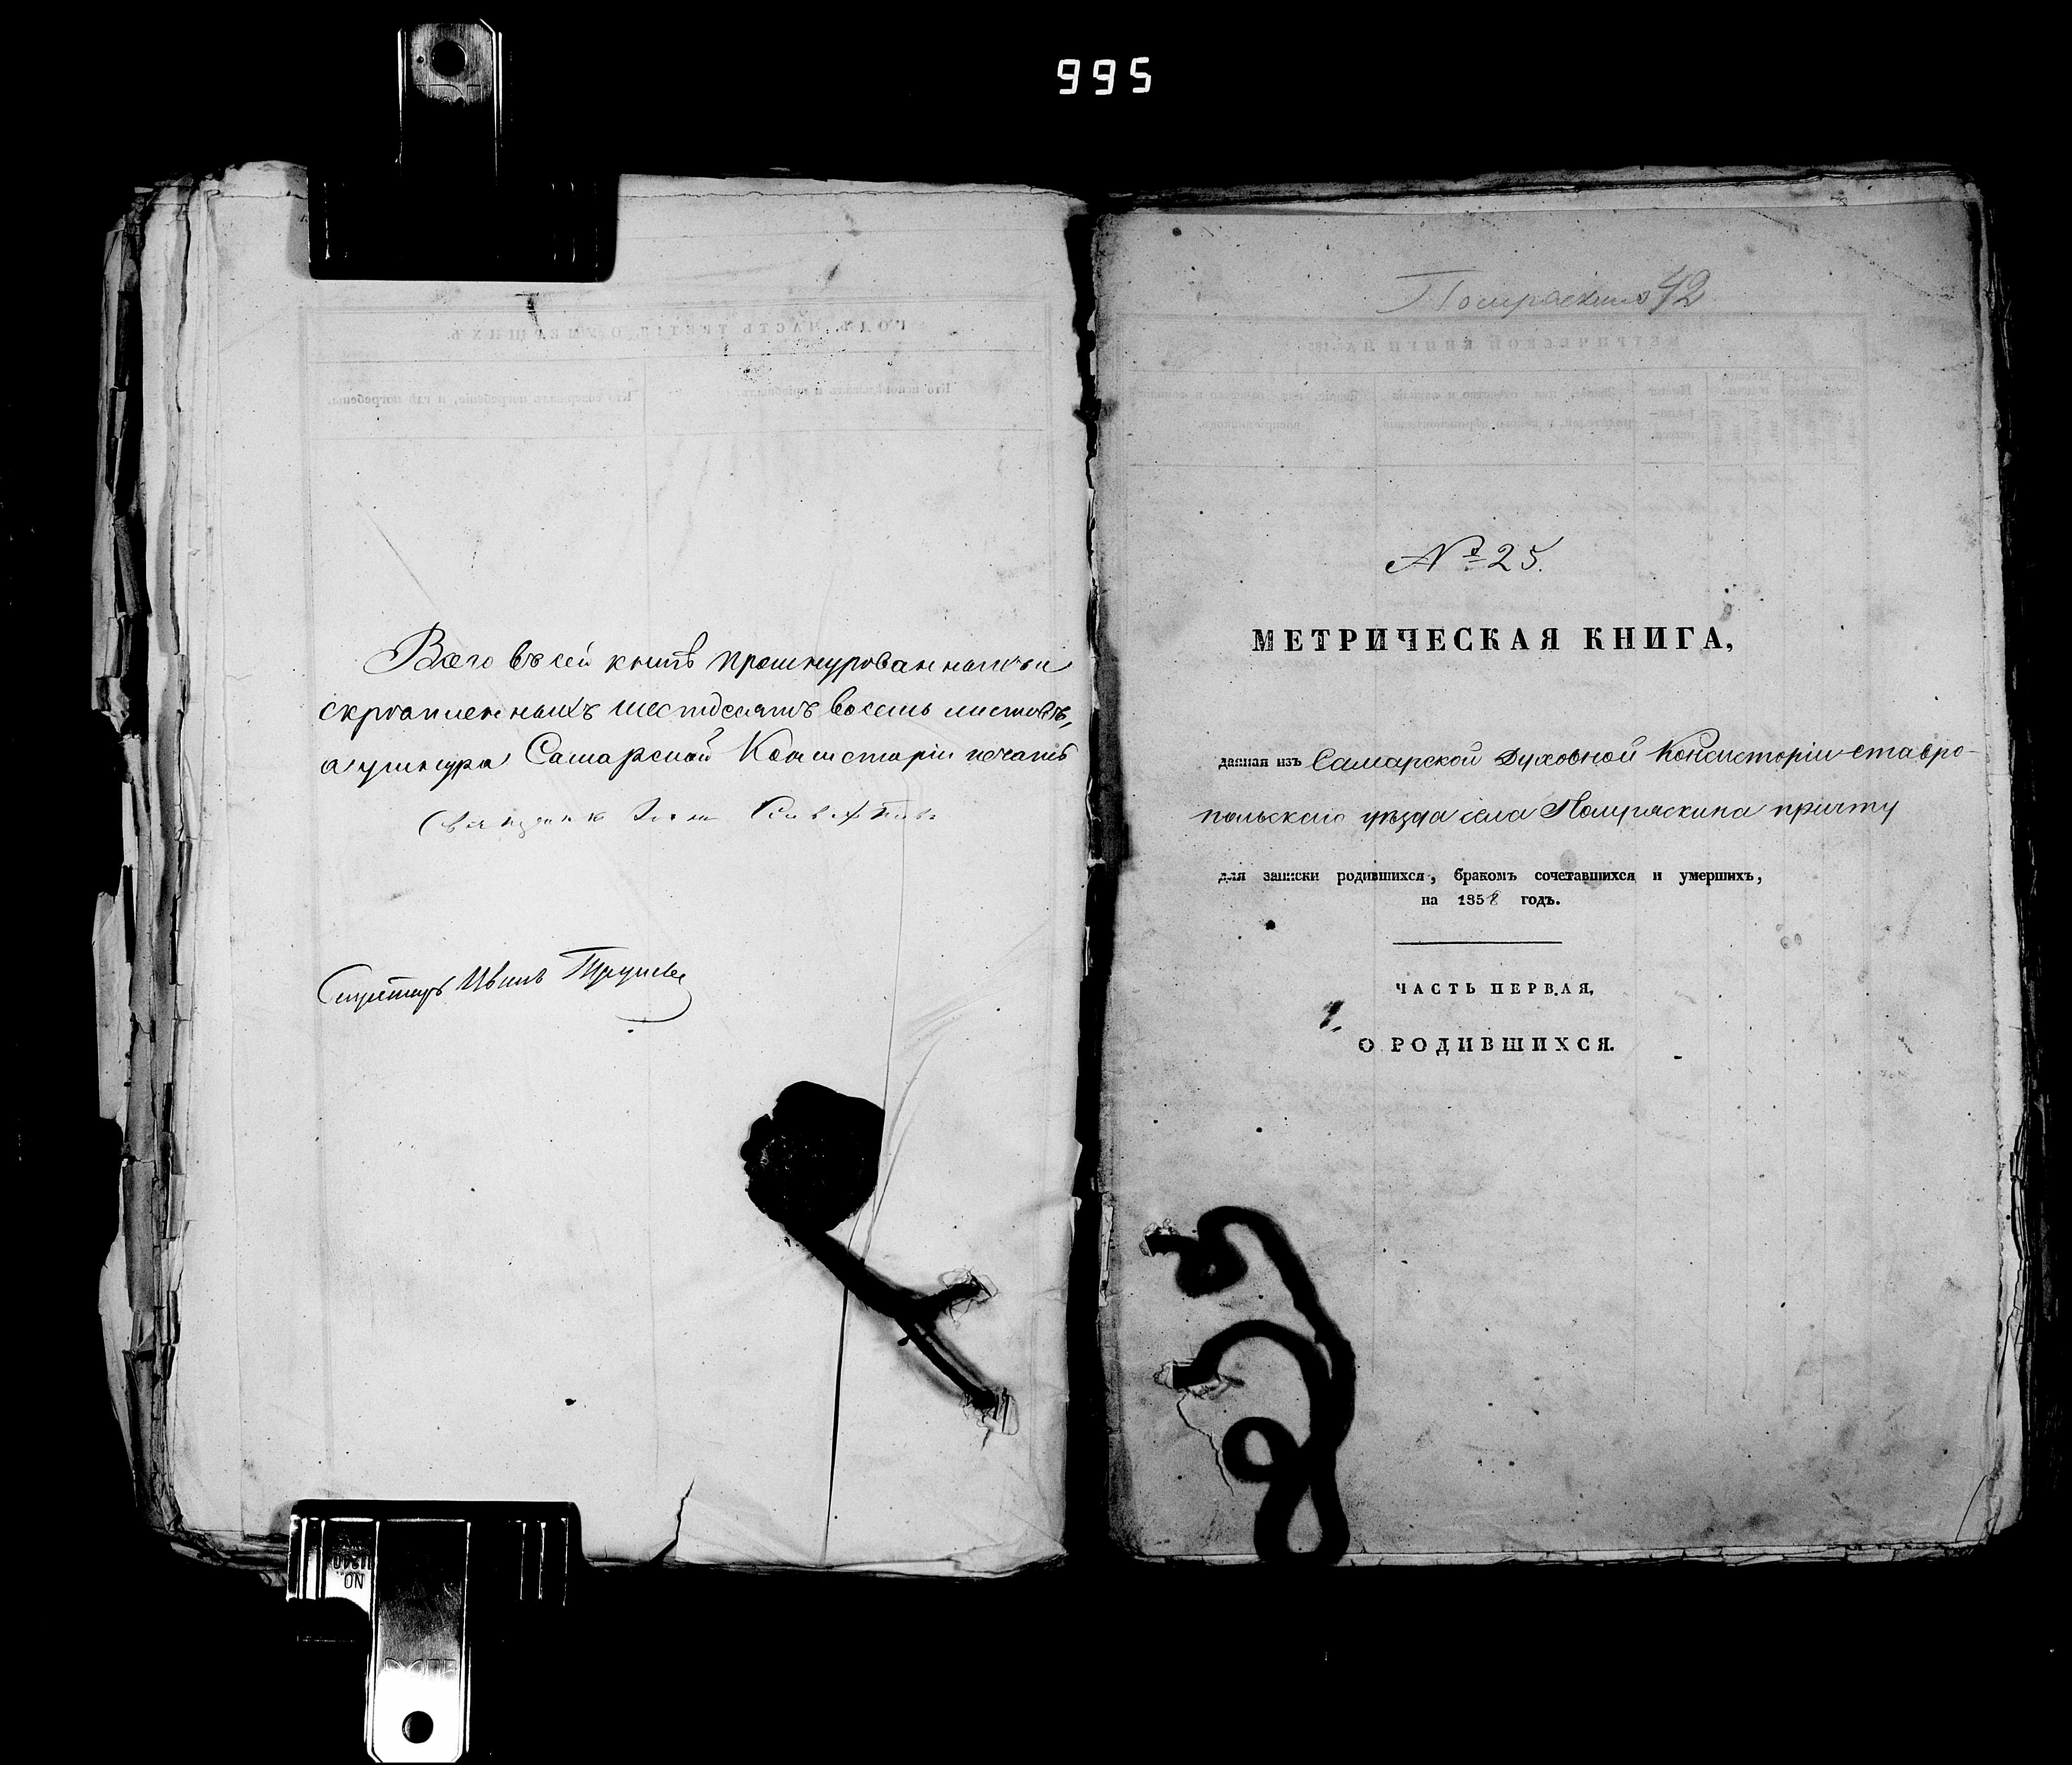 995
Всего въ сей книгѣ прошнурованныхъ и
скрѣпленныхъ шестдесятъ восемь листовъ,
а у шнура Самарской Консисторіи печать
Священникъ
Секретарь Иванъ
Помряскино 42
№ 25.
МЕТРИЧЕСКАЯ КНИГА,
данная изъ Самарской Духовной Консисторіи Ставро-
польскаго уѣзда села Помряскина причту
для записки родившихся, бракомъ сочетавшихся и умершихъ,
на 1858 годъ.
ЧАСТЬ ПЕРВАЯ,
О РОДИВШИХСЯ.